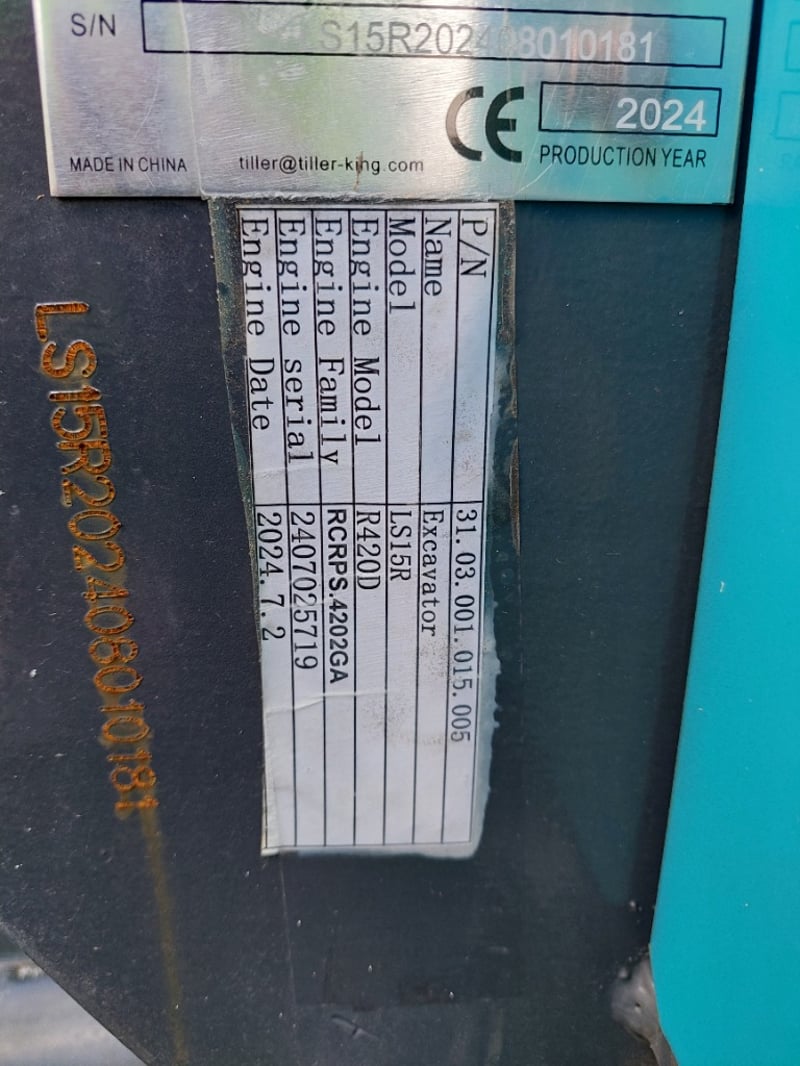 S/N S15R202408010181
2024
MADE IN CHINA tiller@tiller-king.com CE PRODUCTION YEAR
P/N 31.03.001.015.005
Name Excavator
Model LS15R
Engine Model R420D
Engine Family RCRPS.4202GA
Engine serial 2407025719
Engine Date 2024.7.2
LS15R202408010181